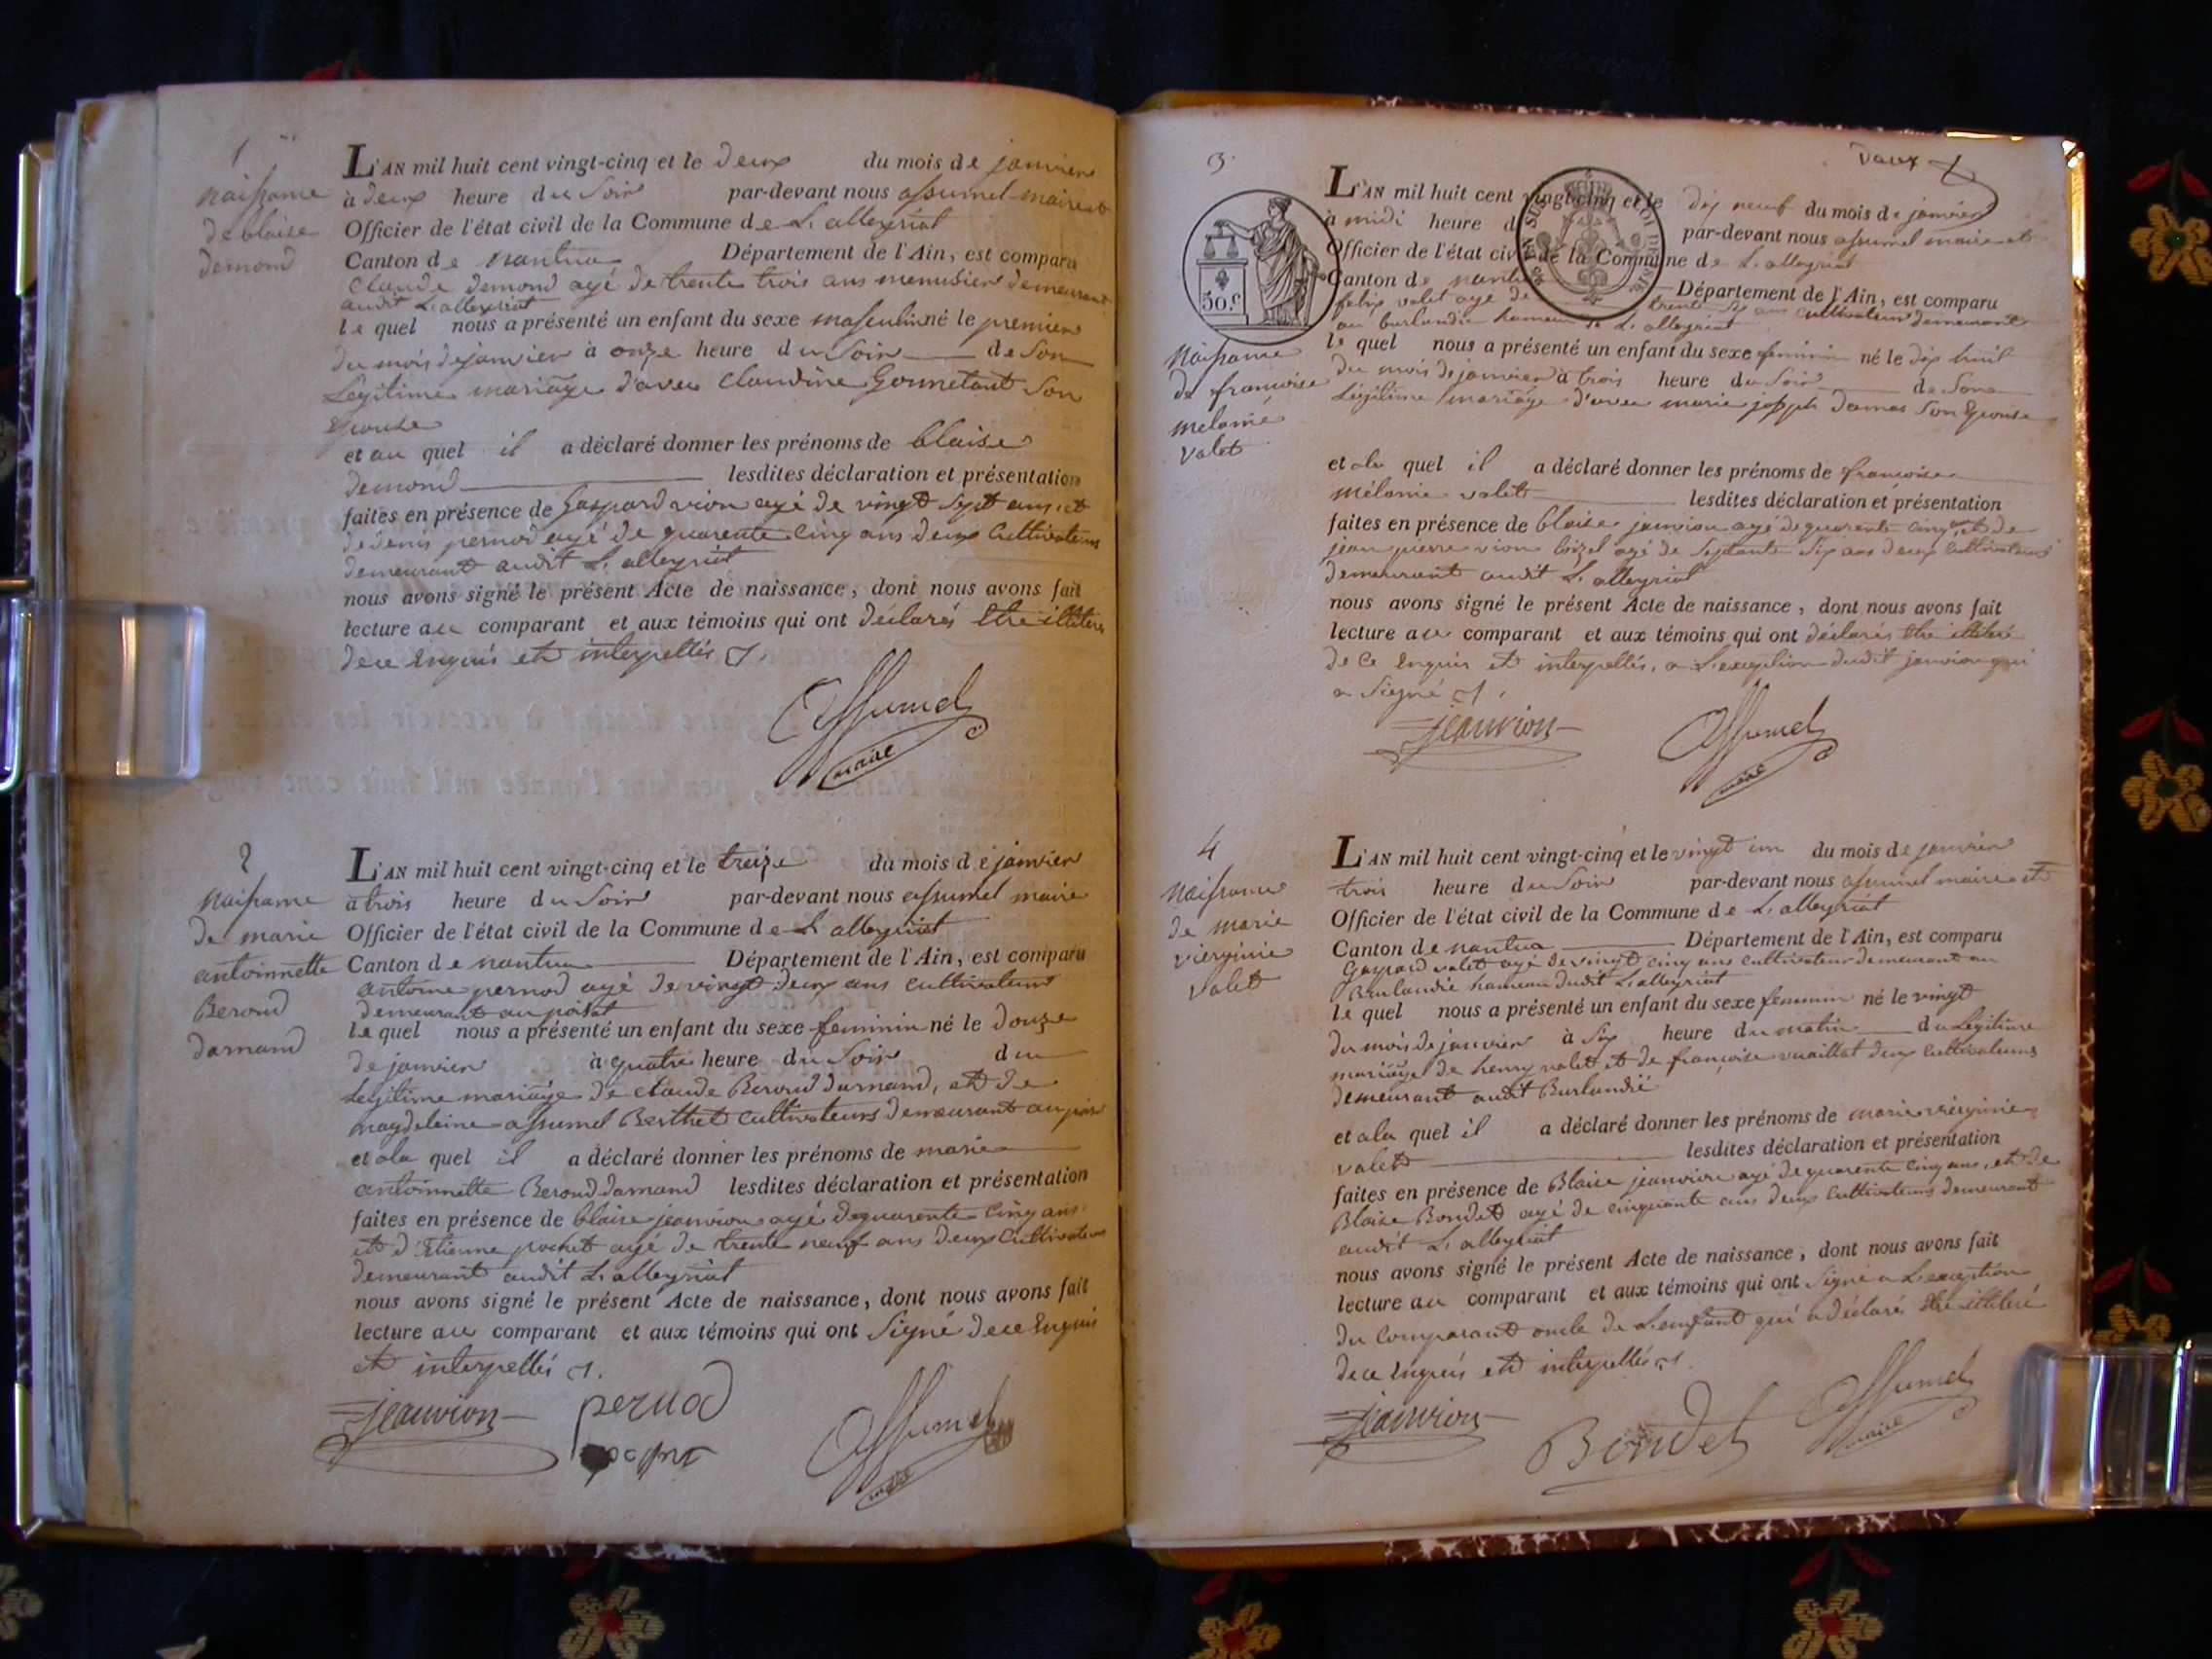 1
naissance
de blaise
demond
L'AN mil huit cent vingt-cinq et le deux du mois de janvier
à deux heure du soir par-devant nous assumel maire et
Officier de l'état civil de la Commune de L'alleyriat
Canton de nantua Département de l'Ain, est comparu
Claude demond agé de trente trois ans menusier demeurant
audit L'alleyriat
le quel nous a présenté un enfant du sexe masculin né le premier
du mois de janvier à onze heure du soir de son
Légitime mariage d'avec Claudine Gonnetant son
Epouse
et au quel il a déclaré donner les prénoms de blaise
demond lesdites déclaration et présentation
faites en présence de gaspard vion agé de vingt sept ans et
de denis pernod agé de quarente cinq ans deux Cultivateurs
demeurant audit L'alleyriat
nous avons signé le présent Acte de naissance, dont nous avons fait
lecture au comparant et aux témoins qui ont déclarés être illiterés
de ce Enquis et interpellés
Assumel
maire
2
naissance
de marie
antoinnette
Beroud
darnand
L'AN mil huit cent vingt-cinq et le treize du mois de janvier
à trois heure du soir par-devant nous assumel maire
Officier de l'état civil de la Commune de L'alleyriat
Canton de nantua Département de l'Ain, est comparu
antoine pernod agé de vingt deux ans cultivateur
demeurant au poisat
le quel nous a présenté un enfant du sexe feminin né le douze
de janvier à quatre heure du soir du
Légitime mariage de claude Beroud darnand, et de
magdeleine assumel Berthet cultivateurs demeurant au
et a la quel il a déclaré donner les prénoms de marie
antoinnette Beroud darnand lesdites déclaration et présentation
faites en présence de blaise jeanvion agé de quarente cinq ans
et d'Etienne pochet agé de trente neuf ans deux Cultivateurs
demeurant audit L'alleyriat
nous avons signé le présent Acte de naissance, dont nous avons fait
lecture au comparant et aux témoins qui ont signé de ce Enquis
et interpellés
jeanvion pernod Assumel
maire
3
Vaux
30.c
naissance
de francoise
melanie
valet
L'AN mil huit cent vingt-cinq et le dix neuf du mois de janvier
à midi heure d par-devant nous assumel maire et
Officier de l'état civil de la Commune de L'alleyriat
Canton de nantua Département de l'Ain, est comparu
felix valet agé de trente six ans cultivateur demeurant
au burlandie hameau de L'alleyriat
le quel nous a présenté un enfant du sexe feminin né le dix huit
du mois de janvier à trois heure du soir de son
Légitime mariage d'avec marie joseph damas son Epouse
et a la quel il a déclaré donner les prénoms de francoise
mélanie valet lesdites déclaration et présentation
faites en présence de blaise janvion agé de quarente cinq ans et de
jean pierre vion loizel agé de septante six ans deux cultivateurs
demeurant audit L'alleyriat
nous avons signé le présent Acte de naissance, dont nous avons fait
lecture au comparant et aux témoins qui ont déclarés être illiteré
de ce Enquis et interpellés, a L'exception dudit janvion qui
a signé
jeanvion Assumel
maire
4
naissance
de marie
viergine
valet
L'AN mil huit cent vingt-cinq et le vingt un du mois de janvier
trois heure du soir par-devant nous assumel maire et
Officier de l'état civil de la Commune de L'alleyriat
Canton de nantua Département de l'Ain, est comparu
Gaspard valet agé de vingt cinq ans cultivateur demeurant au
Burlandié hameau dudit L'alleyriat
le quel nous a présenté un enfant du sexe feminin né le vingt
du mois de janvier à six heure du matin du Légitime
mariage de henry valet et de françoise vuaillat deux cultivateurs
demeurant audit Burlandié
et a la quel il a déclaré donner les prénoms de marie viergine
valet lesdites déclaration et présentation
faites en présence de Blaise jeanvion agé de quarente cinq ans, et de
Blaise Bondet agé de cinquante ans deux cultivateurs demeurant
audit L'alleyriat
nous avons signé le présent Acte de naissance, dont nous avons fait
lecture au comparant et aux témoins qui ont signé a L'exception
du Comparant oncle de L'enfant qui a déclaré être illiteré
de ce Enquis et interpellés
jeanvion Bondet Assumel
maire